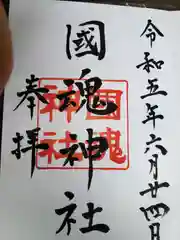 令和五年六月廿四日
國魂神社
奉拝
国魂
神社